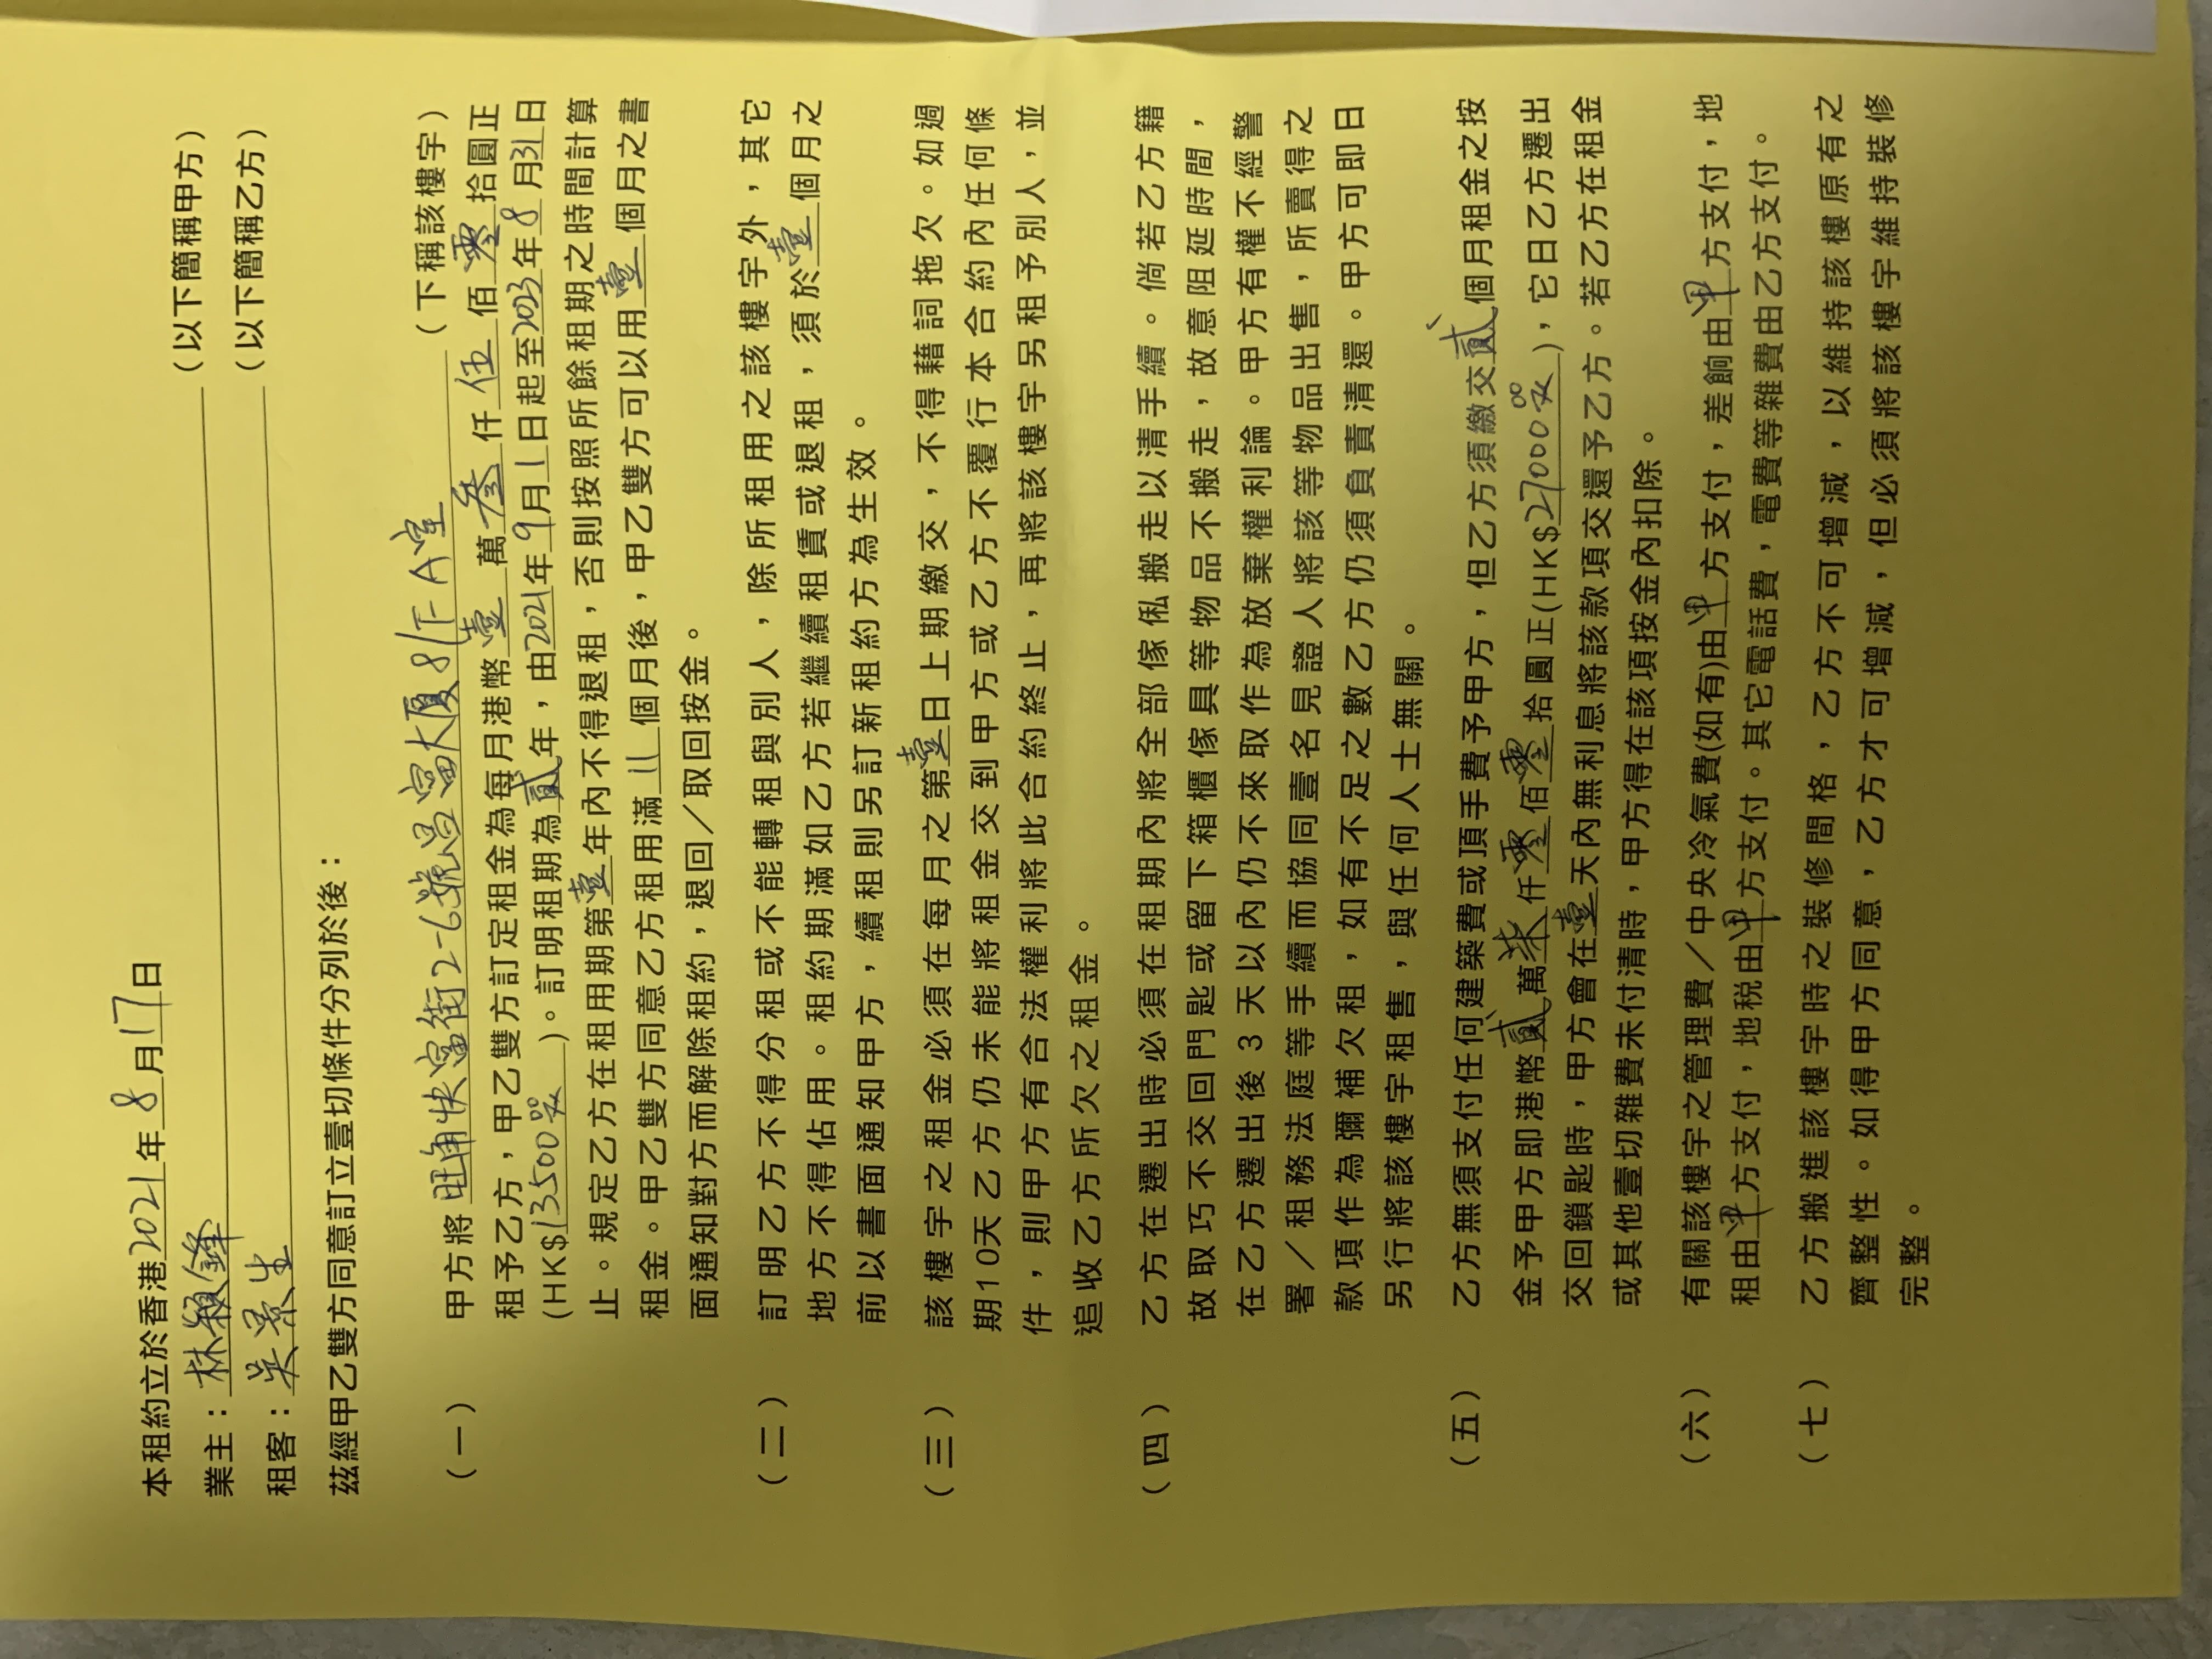 本租約立於香港2021年8月17日
業主：林穎鋒（以下簡稱甲方）
租客：吳景生（以下簡稱乙方）
茲經甲乙雙方同意訂立壹切條件分列於後：
（一） 甲方將旺角快富街2-6號昌富大厦8/F A室（下稱該樓宇）
租予乙方，甲乙雙方訂定租金為每月港幣壹萬叁仟伍佰零拾圓正
(HK$13500.00)。訂明租期為貳年，由2021年9月1日起至2023年8月31日
止。規定乙方在租用期第壹年內不得退租，否則按照所餘租期之時間計算
租金。甲乙雙方同意乙方租用滿11個月後，甲乙雙方可以用壹個月之書
面通知對方而解除租約，退回／取回按金。
（二） 訂明乙方不得分租或不能轉租與別人，除所租用之該樓宇外，其它
地方不得佔用。租約期滿如乙方若繼續租賃或退租，須於壹個月之
前以書面通知甲方，續租則另訂新租約方為生效。
（三） 該樓宇之租金必須在每月之第壹日上期繳交，不得藉詞拖欠。如過
期10天乙方仍未能將租金交到甲方或乙方不覆行本合約內任何條
件，則甲方有合法權利將此合約終止，再將該樓宇另租予別人，並
追收乙方所欠之租金。
（四） 乙方在遷出時必須在租期內將全部傢俬搬走以清手續。倘若乙方籍
故取巧不交回門匙或留下箱櫃傢具等物品不搬走，故意阻延時間，
在乙方遷出後3天以內仍不來取作為放棄權利論。甲方有權不經警
署／租務法庭等手續而協同壹名見證人將該等物品出售，所賣得之
款項作為彌補欠租，如有不足之數乙方仍須負責清還。甲方可即日
另行將該樓宇租售，與任何人士無關。
（五） 乙方無須支付任何建築費或頂手費予甲方，但乙方須繳交貳個月租金之按
金予甲方即港幣貳萬柒仟零佰零拾圓正(HK$27000.00)，它日乙方遷出
交回鎖匙時，甲方會在壹天內無利息將該款項交還予乙方。若乙方在租金
或其他壹切雜費未付清時，甲方得在該項按金內扣除。
（六） 有關該樓宇之管理費／中央冷氣費(如有)由甲方支付，差餉由甲方支付，地
租由甲方支付，地税由甲方支付。其它電話費，電費等雜費由乙方支付。
（七） 乙方搬進該樓宇時之裝修間格，乙方不可增減，以維持該樓原有之
齊整性。如得甲方同意，乙方才可增減，但必須將該樓宇維持裝修
完整。